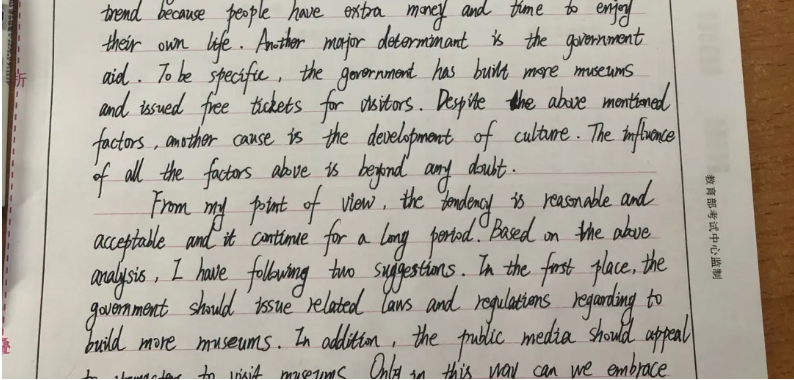 trend because people have extra money and time to enjoy
their own life. Another major determinant is the government
aid. To be specific, the government has built more museums
and issued free tickets for visitors. Despite the above mentioned
factors, another cause is the development of culture. The influence
of all the factors above is beyond any doubt.
From my point of view, the tendency is reasonable and
acceptable and it continue for a long period. Based on the above
analysis, I have following two suggestions. In the first place, the
government should issue related laws and regulations regarding to
build more museums. In addition, the public media should appeal
to visit museums. Only in this way can we embrace
教育部考试中心监制